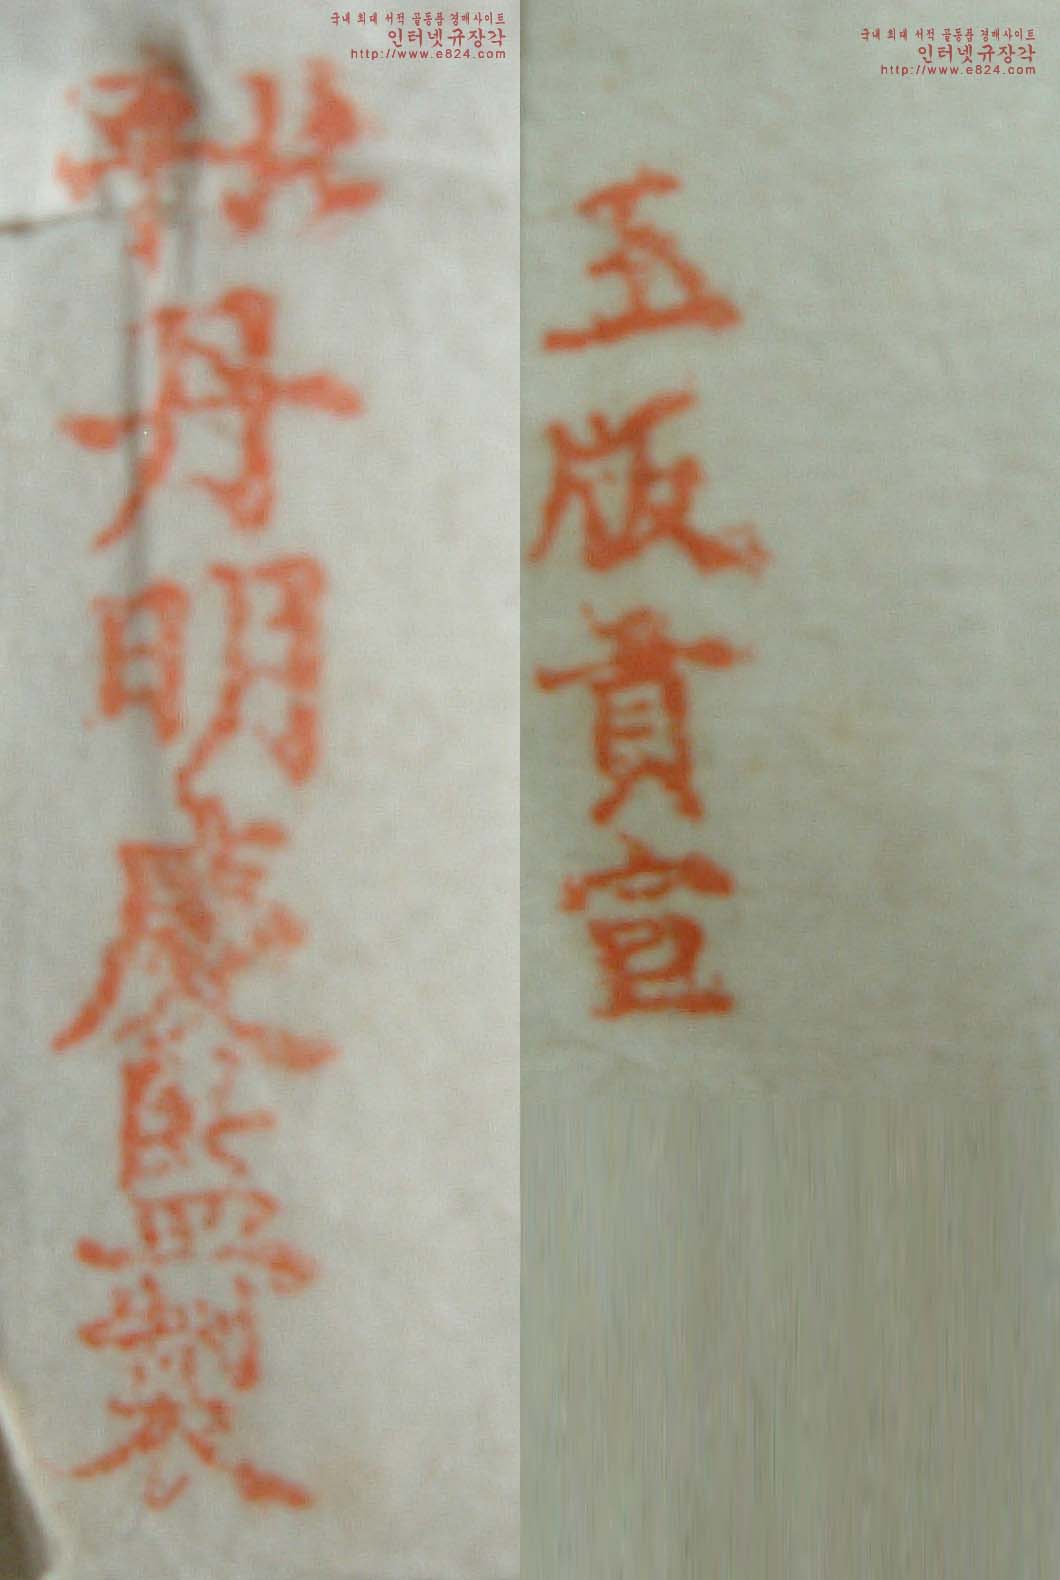 국내 최대 서적 골동품 경매사이트
인터넷규장각
http://www.e824.com
丹明慶監製
국내 최대 서적 골동품 경매사이트
인터넷규장각
http://www.e824.com
五版貢宣